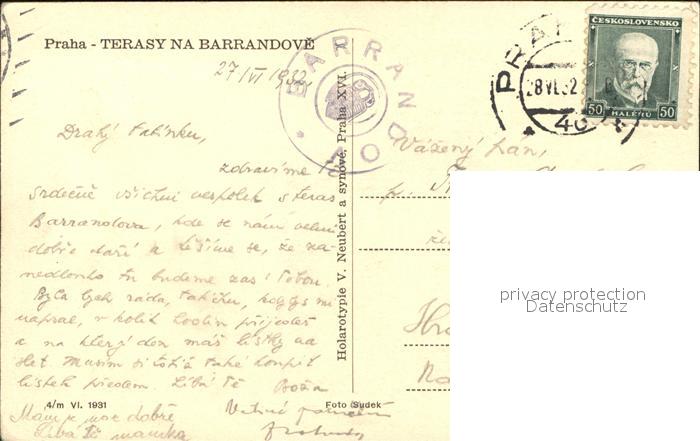 Praha - TERASY NA BARRANDOVĚ
27/VI 1932
BARRANDOV
PRAHA
28.VI.32
40
ČESKOSLOVENSKO
50 HALÉŘŮ 50
Drahý tatínku,
zdravíme Tě
srdečně všichni vespolek s teras
Barrandova, kde se nám velmi
dobře daří a těšíme se, že za-
nedlouho tu budeme zas s Tebou.
Byla bych ráda, tatíčku, kdybys mi
napsal, v kolik hodin přijedeš
a na který den máš lístky na
let. Musím si totiž také koupit
lístek předem. Líbá Tě Boža
4/m VI. 1931
Foto Sudek
Mám se moc dobře
Líbá Tě maminka
Holarotypie V. Neubert a synové, Praha XVI.
Vážený pan,
p.
privacy protection
Datenschutz